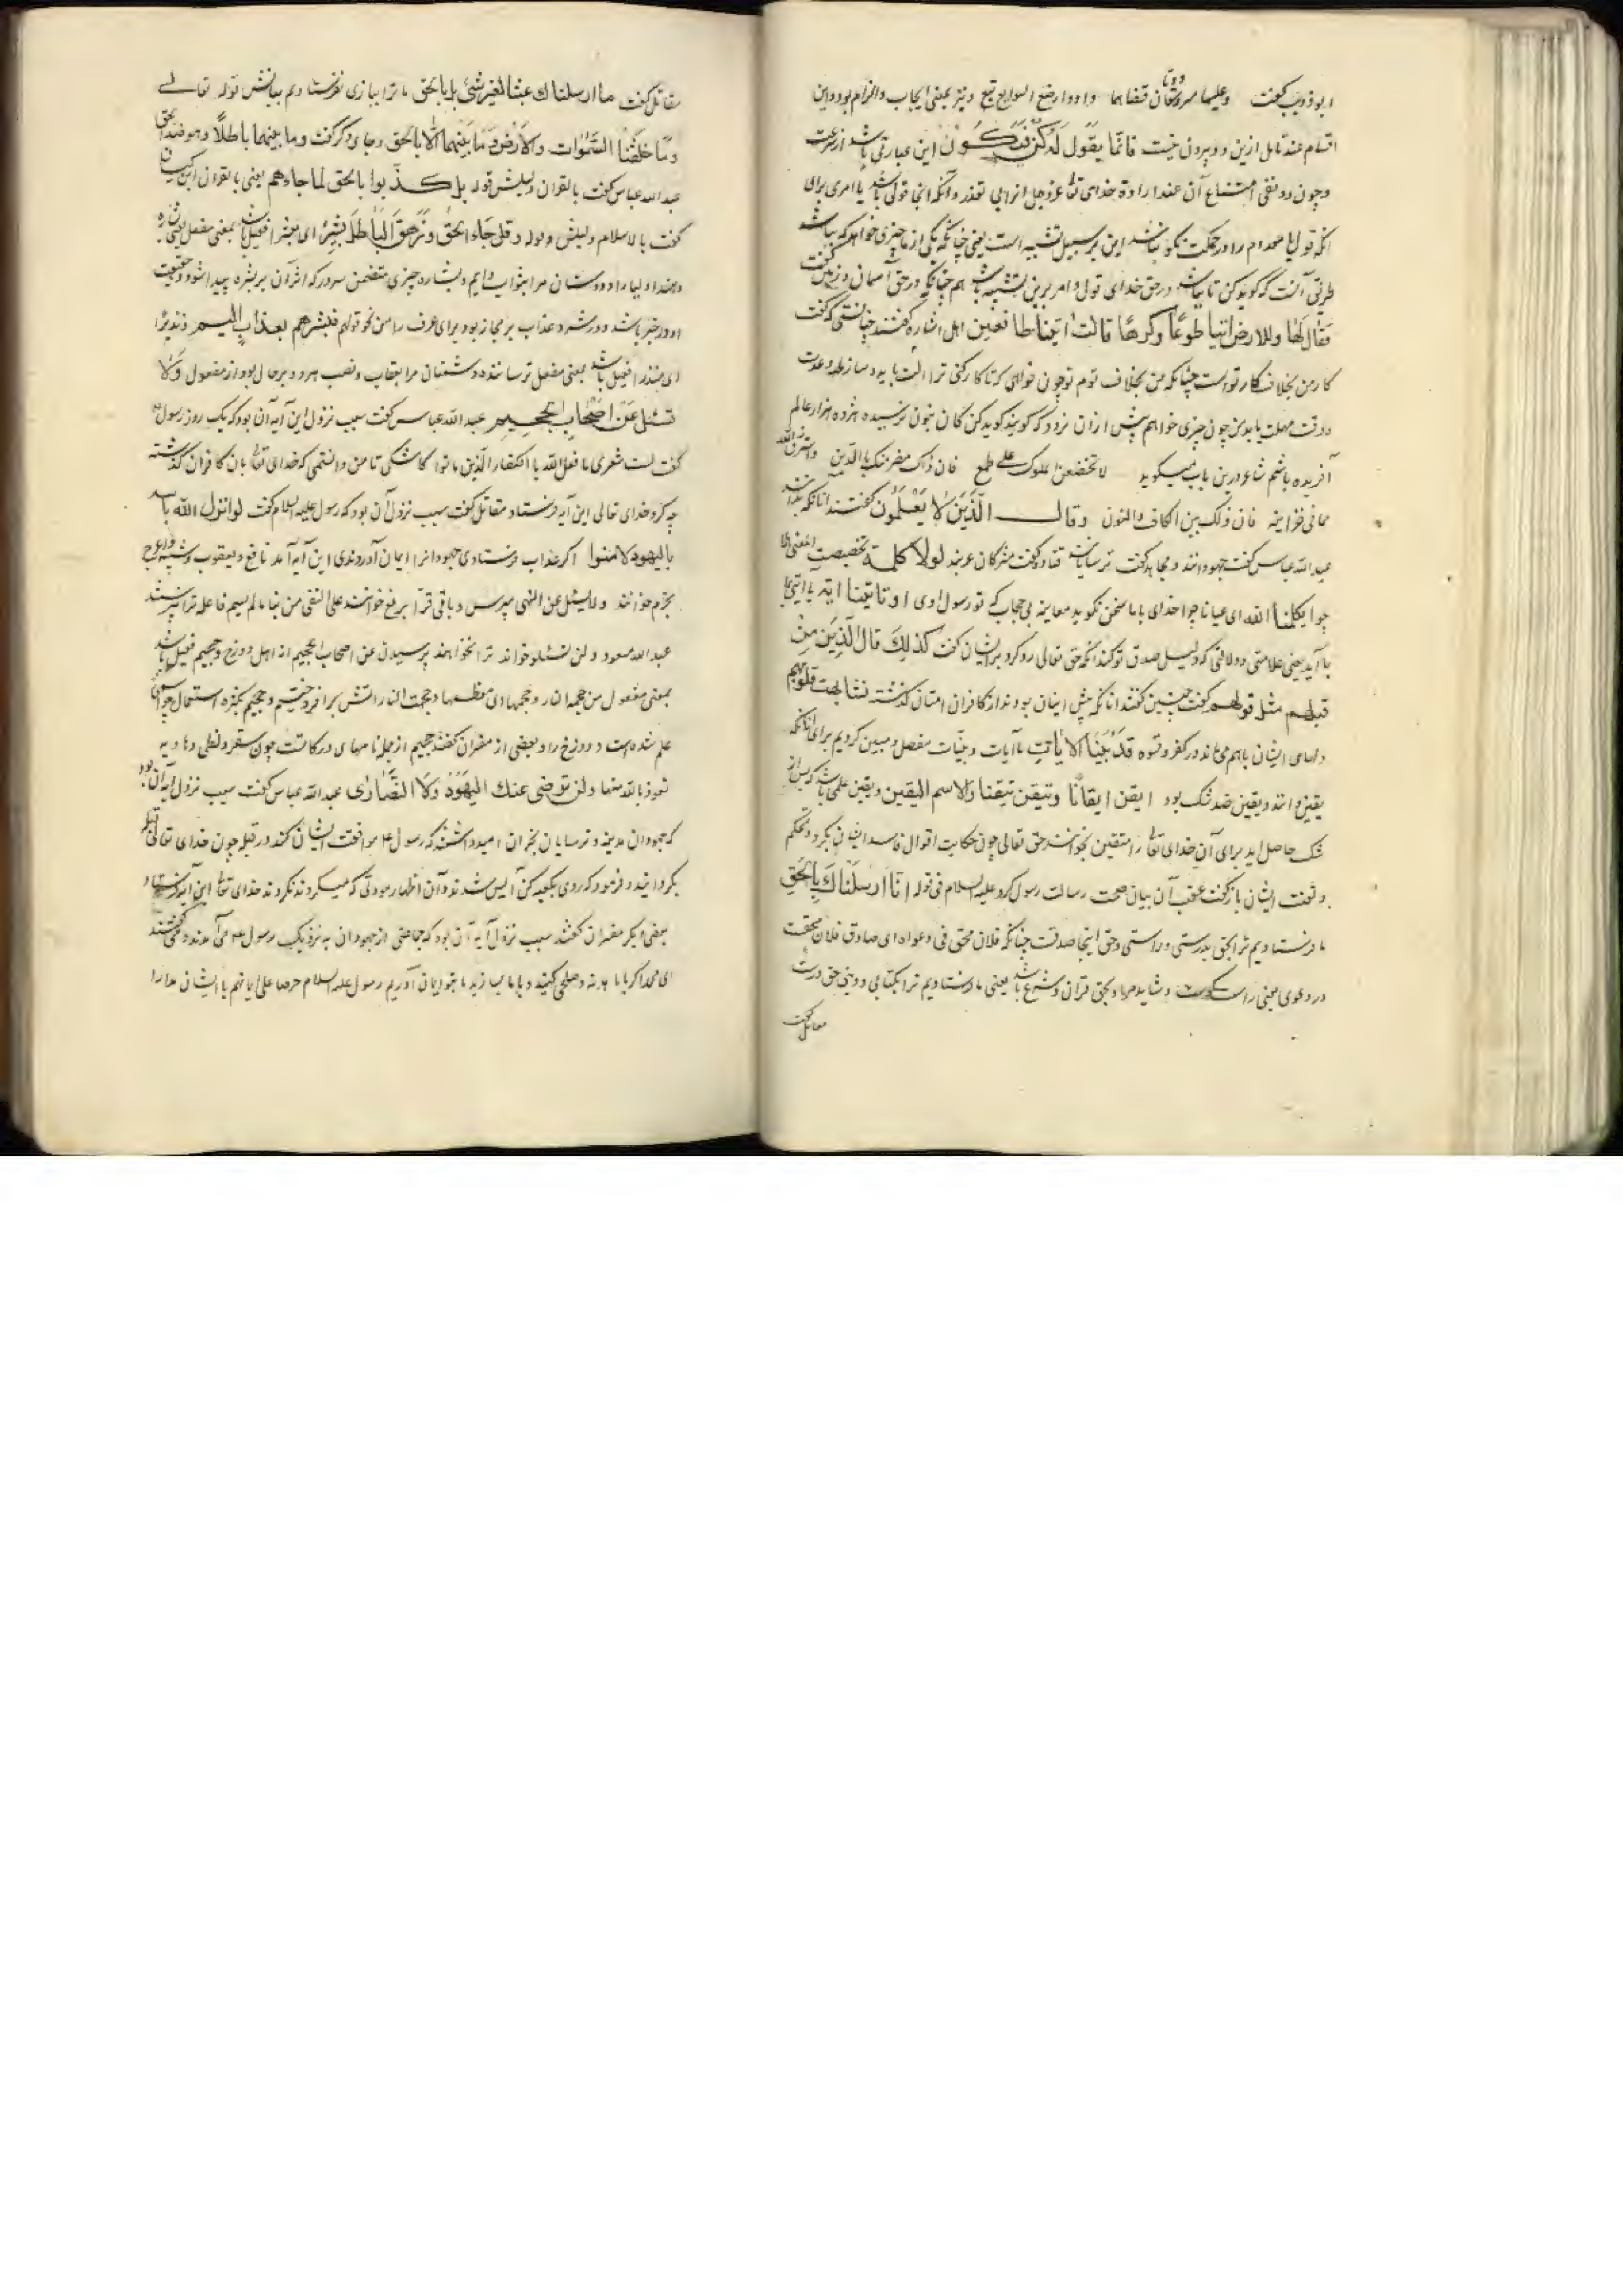 ابو ذویب گفت وعلیهما مسرودتان قضاهما داود او صنع السوابغ تبع ونیز بمعنی ایجاب والزام بود و این
اقسام عند تامل ازین دو بیرون نیست فانّما یقول له کن فیکون این عبارتی باشد از سرعت
وجون و نفی امتناع آن عند اراده خدای تعالی عزوجل از وی تعذر و آنکه آنجا قولی باشد یا امری برای
انکه قول با معدوم را در حکمت نکو نباشد این بر سبیل تشبیه است یعنی چنانکه یکی از ما چیزی خواهد که بباشد
طریق آنست که گوید کن تا بباشد در حق خدای قولی و امر برین تشبیه باشد هم چنانکه در حق آسمان و زمین گفت
فقال لها وللارض ائتیا طوعًا وکرهًا قالتا اتینا طائعین اهل اشاره گفتند چنانستی که گفت
کار من بخلاف کار تو است چنانکه من بخلاف توم تو چون خواهی که تا کار کنی ترا آلت باید و ساز و عدت
و وقت مهلت باید من چون چیزی خواهم پیش از آن نرود که گویند گوید کن کاف بنون نرسیده هژده هزار عالم
آفریده باشم شاعر درین باب میگوید لا تخضعن لمخلوق علی طمع فان ذاک مضر منک بالدین واسترزق الله
مما فی خزاینه فان ذلک بین الکاف والنون وقال الّذین لا یعلمون گفتند آنانکه ندانند
عبدالله عباس گفت جهودانند و مجاهد گفت ترسایانند قتاده گفت مشرکان عربند لولا کلمة تخصیصت
چرا یکلمنا الله ای عیانا چرا خدای با ما سخن نگوید معاینه بی حجاب که تو رسول اوی او تاتینا ایة یا آیتی بما
ما آید یعنی علامتی و دلالتی که دلیل صدق تو کند آنکه حق تعالی رد کرد بر ایشان گفت کذلک قال الذین من
قبلهم مثل قولهم گفت چنین گفتند آنانکه پیش اینان بودند از کافران امتان گذشته تشابهت قلوبهم
دلهای ایشان باهم می ماند در کفر و قسوه قد بیّنا الایات ما آیات و بیّنات مفصل و مبین کردیم برای آنانکه
یقین دانند و یقین ضد شک بود ایقن ایقانًا وتیقن تیقنا والاسم الیقین و یقین علمی باشد که پس از
شک حاصل آید برای آن خدای تعالی را متیقن نخوانند حق تعالی چون حکایت اقوال فاسد ایشان بکرد و تحکم
و تعنت ایشان باز گفت عقب آن بیان صحت رسالت رسول کرد علیه السلام فی قوله انّا ارسلناک بالحق
ما فرستادیم ترا بحق بدرستی و راستی و حق اینجا صدقست چنانکه فلان محق فی دعواه ای صادق فلان محقست
در دعوی یعنی راست گوست و شاید مراد بحق قرآن و شرع باشد یعنی ما فرستادیم ترا بکتابی و دینی حق درست
مقاتل گفت
مقاتل گفت ما ارسلناک عبثا لغیر شئ بل بالحق ما ترا ببازی نفرستادیم بیانش قوله تعالی
وما خلقنا السّموات والارض وما بینهما الّا بالحق وجای دیگر گفت وما بینهما باطلًا وهو ضد الحق
عبدالله عباس گفت بالقران دلیلش قوله بل کذّبوا بالحق لما جاءهم یعنی بالقران ابن کیسان
گفت بالاسلام دلیلش قوله وقل جاء الحق وزهق الباطل بشیرًا ای مبشرا فعیل باشد بمعنی مفعل یعنی بشاره
دهنده اولیا را و دوستان مرا بثواب دایم و بشاره چیزی متضمن سرور که اثر آن بر بشره پیدا شود و حقیقت
او در خیر باشد و در شر و عذاب بر مجاز بود برای عرف را من نحو قولهم فبشرهم بعذاب الیم ونذیرًا
ای منذرا فعیل باشد بمعنی مفعل ترساننده دشمنان مرا بعقاب ونصب هر دو بر حال بود از مفعول ولا
تسئل عن اصحاب الجحیم عبدالله عباس گفت سبب نزول این آیه آن بود که یک روز رسول
گفت لیت شعری ما فعل الله با الکفار الذین ماتوا کاشکی تا من دانستمی که خدای تعالی بآن کافران گذشته
چه کرد خدای تعالی این آیه فرستاد مقاتل گفت سبب نزول آن بود که رسول علیه السلام گفت لو انزل الله باسه
بالیهود لامنوا اگر عذاب فرستادی جهودانرا ایمان آوردندی این آیه آمد نافع و یعقوب و شیبه و اعرج
بجزم خوانند ولا تسئل عن النهی مپرس و باقی قرّا برفع خوانند علی النفی من بنا ما لم یسم فاعله ترا نپرسند
عبدالله مسعود ولن تسئل خواند ترا نخواهند پرسیدن عن اصحاب الجحیم از اهل دوزخ و جحیم فعیل باشد
بمعنی مفعول من جحمه النار وجحمها ای عظمها وجحمت النار آتش بر افروختیم و جحیم بکثره استعمال چون اسمی
علم شده است دوزخ را و بعضی از مفسران گفتند جحیم از جمله نامهای درکاتست چون سقر و لظی و هاویه
نعوذ بالله منها ولن ترضی عنک الیهود ولا النصاری عبدالله عباس گفت سبب نزول آیه آن بود
که جهودان مدینه و ترسایان نجران امید داشتند که رسول ع موافقت ایشان کند در قبله چون خدای تعالی قبله
بگردانید و فرمود که روی بکعبه کن آیس شدند و آن اظهار مودتی که میکردند نکردند خدای تعالی این آیه فرستاد
بعضی دیگر مفسران گفتند سبب نزول آیه آن بود که جماعتی از جهودان به نزدیک رسول ع می آمدند و می گفتند
ای محمد اگر با ما هدنه و صلحی کنید و با ما بسازید ما بتو ایمان آوریم رسول علیه السلام حرصا علی ایمانهم با ایشان مدارا